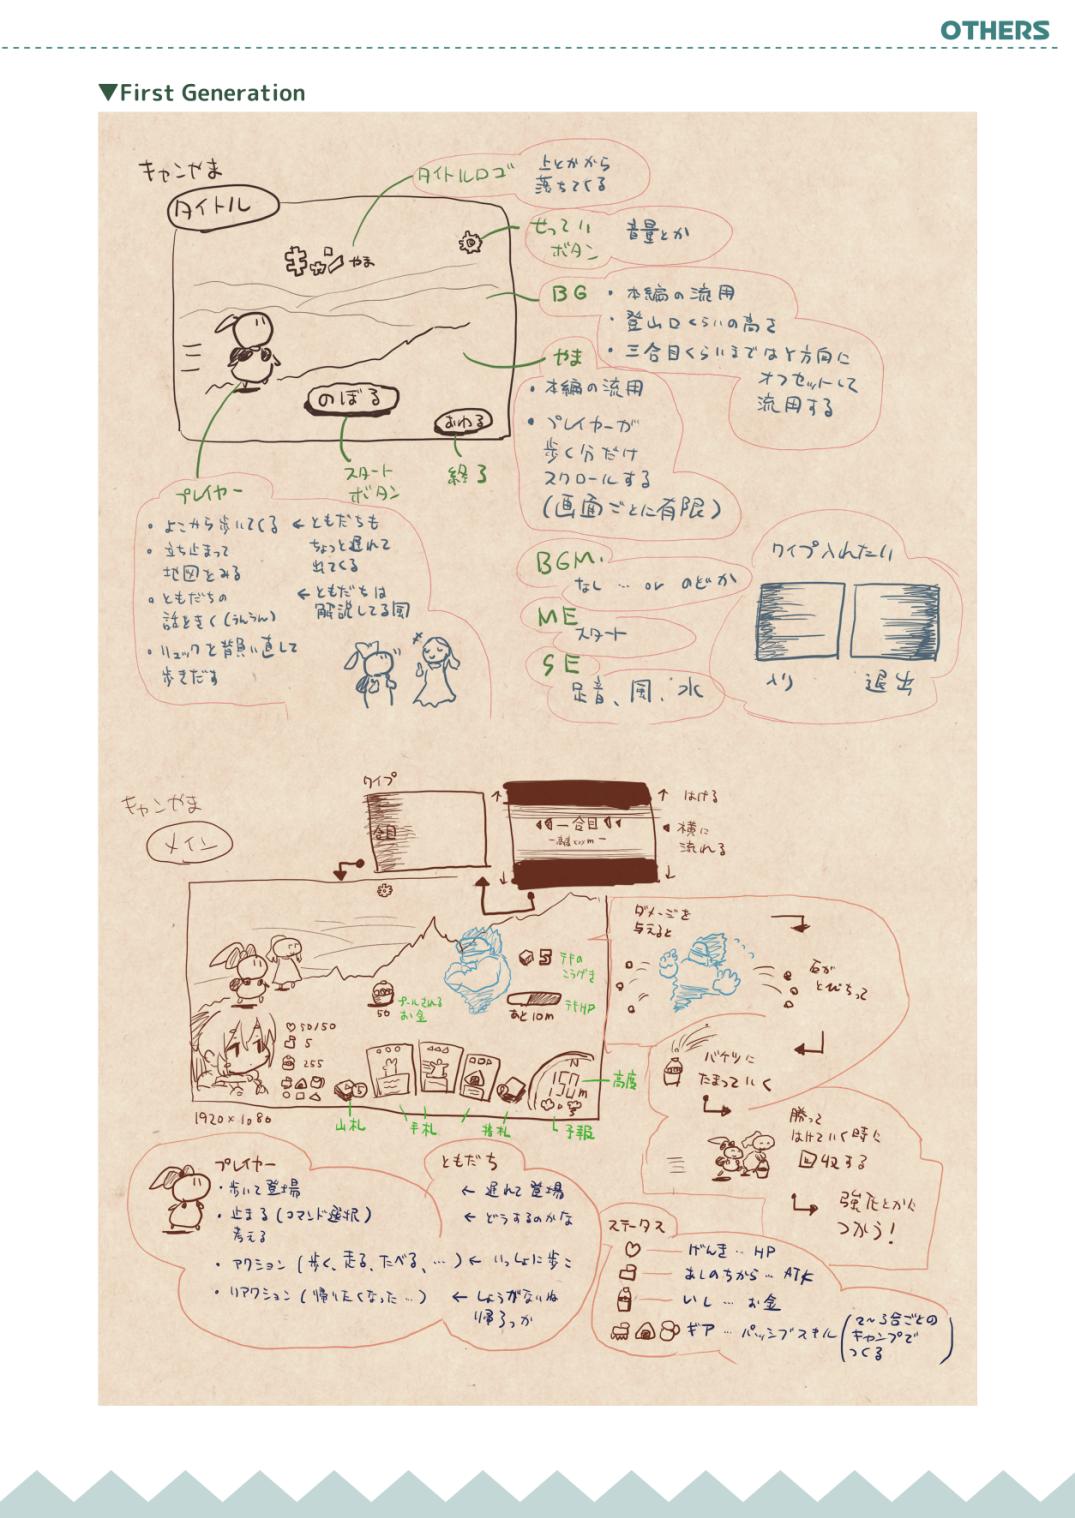 OTHERS
▼First Generation
キャンやま
タイトル
キャンやま
のぼる
おわる
タイトルロゴ
上とかから
落ちてくる
せってい
ボタン
音量とか
BG
・本編の流用
・登山口くらいの高さ
・三合目くらいまではY方向に
オフセットして
流用する
やま
・本編の流用
・プレイヤーが
歩く分だけ
スクロールする
(画面ごとに有限)
スタート
ボタン
終了
プレイヤー
・よこから歩いてくる
←ともだちも
ちょっと遅れて
出てくる
・立ち止まって
地図をみる
・ともだちの
話をきく(うんうん)
←ともだちは
解説してる風
・リュックを背負い直して
歩きだす
BGM
なし … or のどか
ME
スタート
SE
足音、風、水
ワイプ入れたい
入り
退出
キャンやま
メイン
ワイプ
合目
一合目
はける
横に
流れる
5
テキの
こうげき
テキHP
あと10m
50
プールされる
お金
50/50
5
255
N
150m
高度
1920×1080
山札
手札
捨札
予報
ダメージを
与えると
石が
とびちって
バケツに
たまっていく
勝って
はけていく時に
回収する
強化とかに
つかう!
プレイヤー
・歩いて登場
・止まる(コマンド選択)
考える
・アクション(歩く、走る、たべる、…)
・リアクション(帰りたくなった…)
ともだち
← 遅れて登場
← どうするのかな
← いっしょに歩こ
← しょうがないね
帰ろっか
ステータス
げんき … HP
あしのちから … ATK
いし … お金
ギア … パッシブスキル
(2〜3合ごとの
キャンプで
つくる)